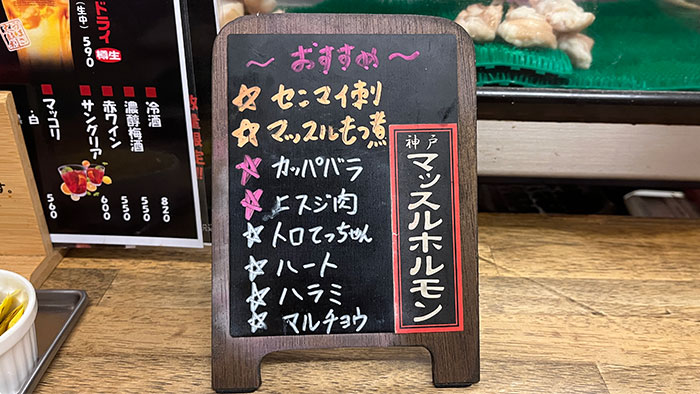 ドライ
(生中)
樽生
590
マッコリ
500
サングリア
600
赤ワイン
550
濃醇梅酒
550
冷酒
820
白
す。
〜おすすめ〜
☆センマイ刺り
☆マッスルもつ煮
☆カッパバラ
☆ヒスジ肉
☆トロてっちゃん
☆ハート
☆ハラミ
☆マルチョウ
神戸
マッスルホルモン